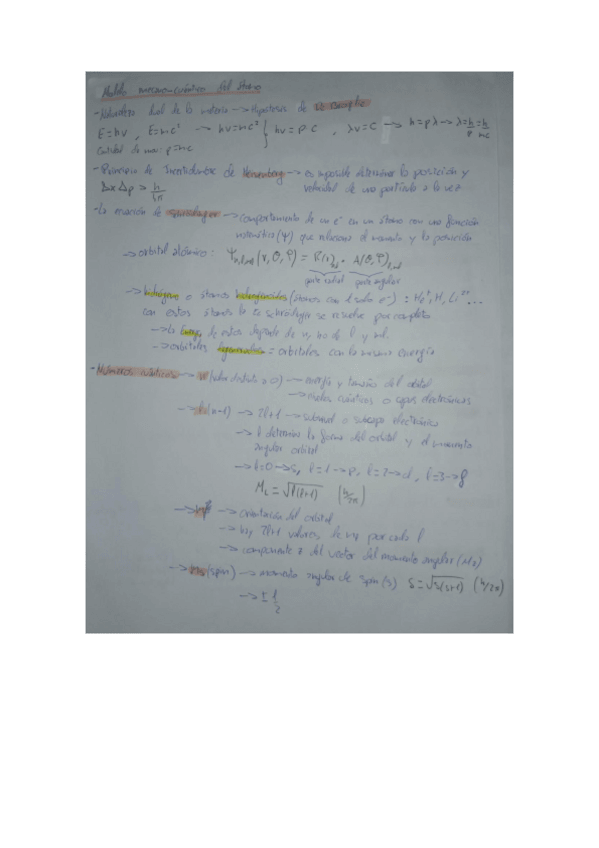 Modelo mecanocuántico del átomo
-Naturaleza dual de la materia → Hipótesis de De Broglie
E=hν , E=mc² → hν=mc² } hν=p·c , λν=c → h=pλ → λ=h/p=h/mc
Cantidad de mov: p=mc
-Principio de Incertidumbre de Heisenberg → es imposible determinar la posición y
Δx Δp ≥ h/4π velocidad de una partícula a la vez
-La ecuación de Schrödinger → comportamiento de un e⁻ en un átomo con una función
matemática (Ψ) que relaciona el momento y la posición
→ orbital atómico: Ψn,l,ml (r,θ,φ) = R(r)n,l · A(θ,φ)l,ml
parte radial parte angular
→ hidrógeno o átomos hidrogenoides (átomos con 1 solo e⁻) : H, Li²⁺...
con estos átomos la Ec Schrödinger se resuelve por completo
→ La Energía de estos depende de n, no de l y ml.
→ orbitales degenerados = orbitales con la misma energía
-Números cuánticos → n (valor distinto a 0) → energía y tamaño del orbital
→ niveles cuánticos o capas electrónicas
→ l (n-1) → 2l+1 → subnivel o subcapa electrónica
→ l determina la forma del orbital y el momento
angular orbital
→ l=0→s, l=1→p, l=2→d, l=3→f
M_L = √l(l+1) (h/2π)
→ ml → orientación del orbital
→ hay 2l+1 valores de ml por cada l
→ componente z del vector del momento angular (Mz)
→ ms (spin) → momento angular de spin (s) S=√s(s+1) (h/2π)
→ ± 1/2